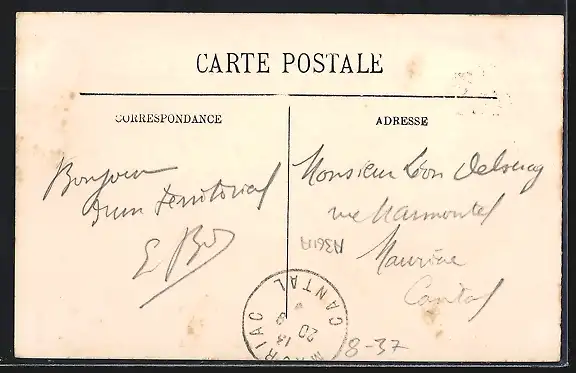 CARTE POSTALE
CORRESPONDANCE
Bonjour
d'un territorial
ADRESSE
Monsieur Léon
rue Marmontel
Mauriac
Cantal
MAURIAC
CANTAL
20
13
8-37